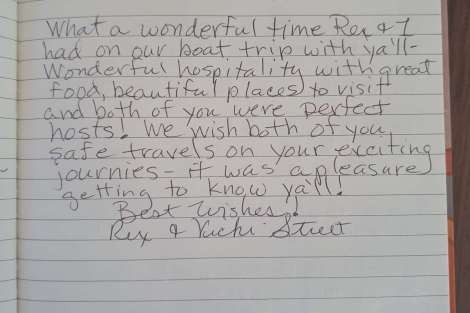 What a wonderful time Rex & I
had on our boat trip with ya'll-
Wonderful hospitality with great
food, beautiful places to visit
and both of you were perfect
hosts. We wish both of you
safe travels on your exciting
journies - it was a pleasure
getting to know ya'll!
Best Wishes!
Rex & Street